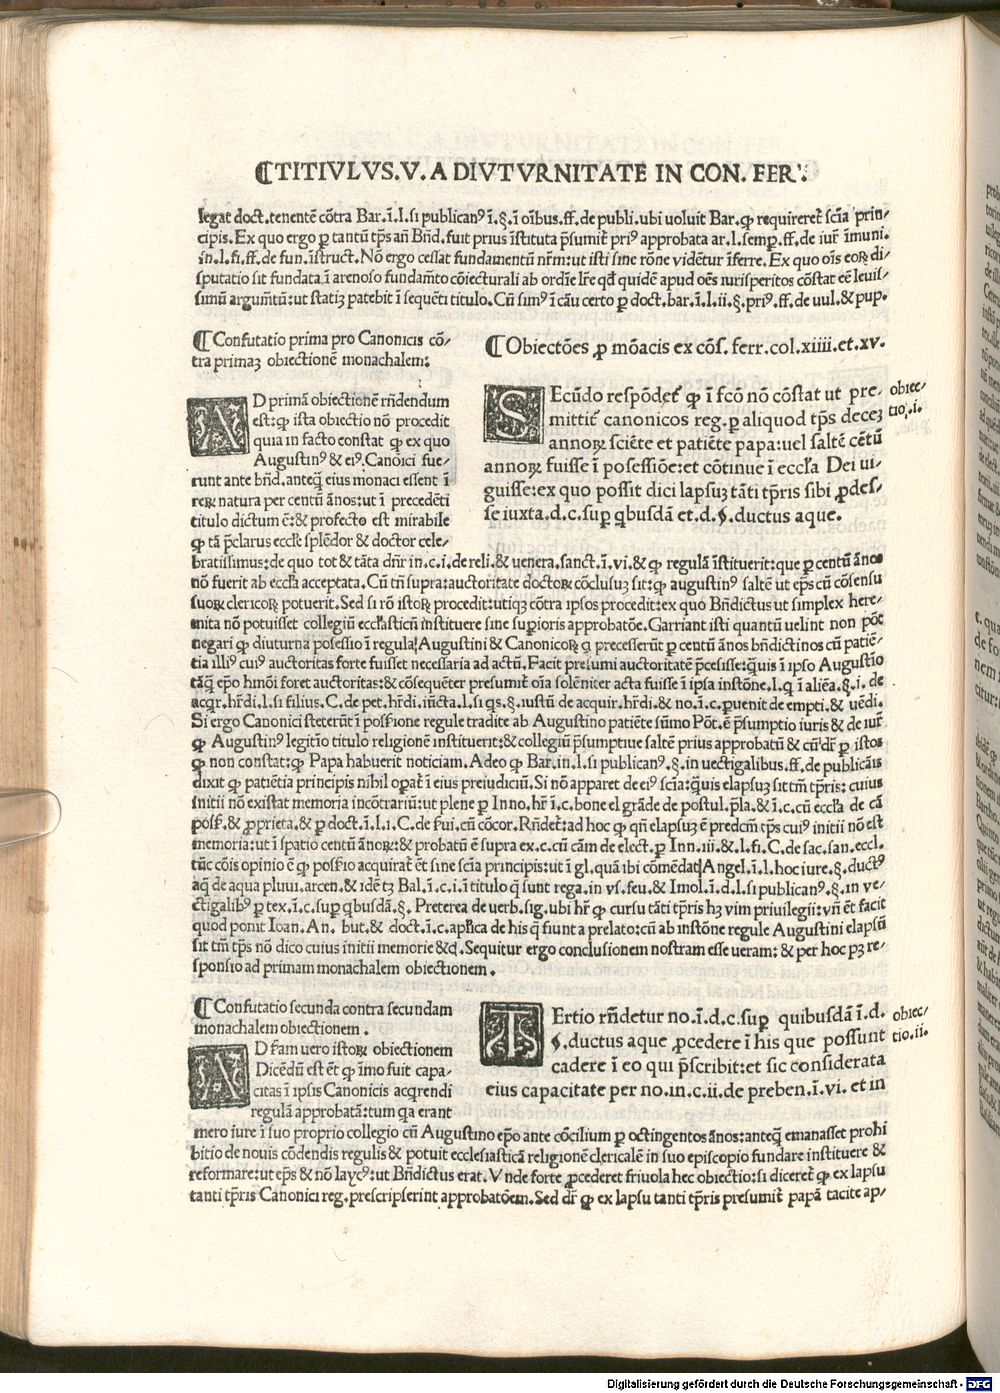 ¶TITIVLVS.V.A DIVTVRNITATE IN CON. FER'.
legat doct.tenentē cōtra Bar.ī.l.si publicanꝰ ī.§.ī oībus.ff.de publi.ubi uoluit Bar.ꝙ requireret̄ sciā prin/
cipis.Ex quo ergo ꝑ tantū tp̄s an̄ Bn̄d.fuit prius īstituta p̄sumit̄ priꝰ approbata ar.l.semꝑ.ff.de iur̄ īmuni.
in.l.fi.ff.de fun.īstruct.Nō ergo cessat fundamentū nr̄m:ut isti sine rōne vidētur īferre.Ex quo oīs eoꝝ di/
sputatio sit fundata ī arenoso fundam̄to cōiecturali ab ordīe lr̄e qđ quidē apud oēs iurisperitos cōstat eē leuis/
simū argum̄tū:ut statiꝫ patebit ī sequēti titulo.Cū simꝰ ī cāu certo ꝑ doct.bar.ī.l.ii.§.priꝰ.ff.de uul.& pup.
¶Confutatio prima pro Canonicis cō/
tra primaꝫ obiectionē monachalem:
AD primā obiectionē rn̄dendum
est:ꝙ ista obiectio nō procedit
quia in facto constat ꝙ ex quo
Augustinꝰ & eiꝰ.Canōici fue/
runt ante bn̄d.anteꝗ̄ eius monaci essent ī
reꝝ natura per centū ānos:ut ī precedēti
titulo dictum ē:& profecto est mirabile
ꝙ tā p̄clarus eccl̄e splēdor & doctor cele/
¶Obiectōes ꝓ mōacis ex cōs. ferr.col.xiiii.et.xv.
SEcūdo respōdet̄ ꝙ ī fc̄o nō cōstat ut pre/
mittit̄ canonicos reg.ꝑ aliquod tp̄s deceꝫ
annoꝝ sciēte et patiēte papa:uel saltē cētū
annoꝝ fuisse ī posessiōe:et cōtinue ī eccl̄a Dei ui/
guisse:ex quo possit dici lapsuꝫ tāti tp̄ris sibi ꝓdes/
se iuxta.d.c.suꝑ ꝗbusdā et.d.§.ductus aque.
obiec/
tio.i.
bratissimus:de quo tot & tāta dn̄r in.c.i.de reli.& uenera.sanct.ī.vi.& ꝙ regulā īstituerit:que ꝑ centū ānos
nō fuerit ab eccl̄a acceptata.Cū tn̄ supra:auctoritate doctoꝝ cōclusuꝫ sit:ꝙ augustinꝰ saltē ut ep̄s cū cōsensu
suoꝝ clericoꝝ potuerit.Sed si rō istoꝝ procedit:utiqꝫ cōtra ipsos procedit:ex quo Bn̄dictus ut simplex here/
mita nō potuisset collegiū eccl̄asticū instituere sine suꝑioris approbatōe.Garriant isti quantū uelint non pōt
negari ꝙ diuturna posessio ī regula Augustini & Canonicoꝝ q precesserūt ꝑ centū ānos bn̄dictinos cū patiē/
tia illiꝰ cuiꝰ auctoritas forte fuisset necessaria ad actū.Facit presumi auctoritatē p̄cesisse:ꝗ̄uis ī ipso Augustīo
tāꝗ̄ ep̄o hm̄oi foret auctoritas:& cōsequēter presumit̄ oīa solēniter acta fuisse ī ipsa instōne.l.ꝗ ī aliēa.§.i.de
acqr.hr̄di.l.si filius.C.de pet.hr̄di.iūcta.l.si qs.§.iustū de acquir.hr̄di.& no.ī.c.ꝑuenit de empti.& uēdi.
Si ergo Canonici steterūt ī possīone regule tradite ab Augustino patiēte sūmo Pōt.ē p̄sumptio iuris & de iur̄
ꝙ Augustinꝰ legittīo titulo religionē instituerit:& collegiū p̄sumptiue saltē prius approbatū & cū dr̄ ꝑ istos
ꝙ non constat:ꝙ Papa habuerit noticiam.Adeo ꝙ Bar.in.l.si publicanꝰ.§.in uectigalibus.ff.de publicāis
dixit ꝙ patiētia principis nihil opat̄ ī eius preiudiciū.Si nō apparet de eiꝰ sciā:ꝗ̄uis elapsuꝫ sit tm̄ tp̄ris:cuius
initii nō existat memoria incōtrariū:ut plene ꝑ Inno.hr̄ ī.c.bone el grāde de postul.p̄la.& ī.c.cū eccl̄a de cā
poss.& ꝓprieta.& ꝑ doct.ī.l.i.C.de s̄ui.cū cōcor.Rn̄det̄:ad hoc ꝙ qn̄ elapsuꝫ ē predcm̄ tp̄s cuiꝰ initii nō est
memoria:ut ī spatio centū ānoꝝ:& probatū ē supra ex.c.cū cām de elect.ꝑ Inn.iii.& l.fi.C.de sac.san.eccl.
tūc cōis opinio ē ꝙ possīo acquirat̄ ēt sine sciā principis:ut ī gl.quā ibi cōmēdat Angel.ī.l.hoc iure.§.ductꝰ
aꝗ̄ de aqua pluui.arcen.& idē tꝫ Bal.ī.c.i.ī titulo ꝗ̄ sunt rega.in vs.feu.& Imol.ī.d.l.si publicanꝰ.§.in ve/
ctigalibꝰ ꝑ tex.ī.c.suꝑ ꝗbusdā.§.Preterea de verb.sig.ubi hr̄ ꝙ cursu tāti tp̄ris hꝫ vim priuilegii:vn̄ ēt facit
quod ponit Ioan.An. but.& doct.ī.c.apl̄ica de his ꝗ̄ fiunt a prelato:cū ab instōne regule Augustini elapsū
sit tm̄ tp̄s nō dico cuius initii memorie &d.Sequitur ergo conclusionem nostram esse ueram:& per hoc pꝫ re/
sponsio ad primam monachalem obiectionem.
¶Confutatio secunda contra secundam
monachalem obiectionem.
AD s̄am uero istoꝝ obiectionem
Dicēdū est ēt ꝙ īmo fuit capa/
citas ī ipsis Canonicis acqrendi
regulā approbatā:tum qa erant
TErtio rn̄detur no.ī.d.c.suꝑ quibusdā ī.d.
§.ductus aque ꝓcedere ī his que possunt
cadere ī eo qui p̄scribit:et sic considerata
eius capacitate per no.in.c.ii.de preben.ī.vi.et in
obiec/
tio.ii.
mero iure ī suo proprio collegio cū Augustino ep̄o ante cōcilium ꝑ octingentos ānos:anteꝗ̄ emanasset prohi
bitio de nouis cōdendis regulis & potuit ecclesiasticā religionē clericalē in suo episcopio fundare instituere &
reformare:ut ep̄s & nō laycꝰ:ut Bn̄dictus erat.Vnde forte ꝓcederet friuola hec obiectio:si diceret̄ ꝙ ex lapsu
tanti tp̄ris Canonici reg.prescripserint approbatōem.Sed dr̄ ꝙ ex lapsu tanti tp̄ris presumit̄ papā tacite ap/
Digitalisierung gefördert durch die Deutsche Forschungsgemeinschaft - DFG